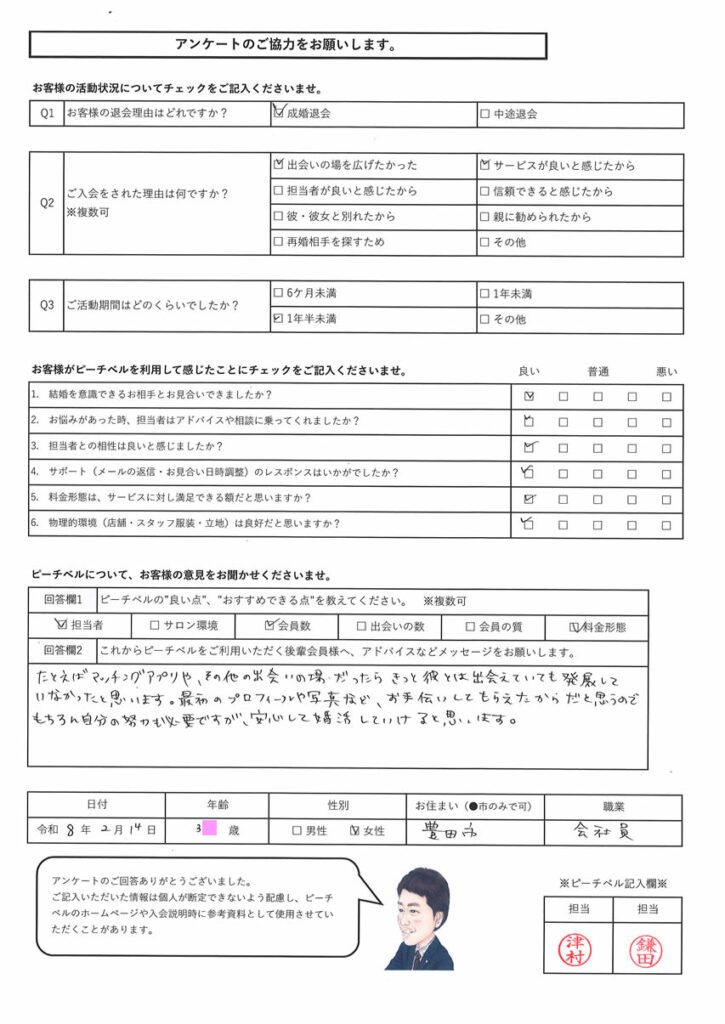 アンケートのご協力をお願いします。
お客様の活動状況についてチェックをご記入くださいませ。
Q1 お客様の退会理由はどれですか？ ☑成婚退会 □中途退会
Q2 ご入会をされた理由は何ですか？ ※複数可
☑出会いの場を広げたかった ☑サービスが良いと感じたから
□担当者が良いと感じたから □信頼できると感じたから
□彼・彼女と別れたから □親に勧められたから
□再婚相手を探すため □その他
Q3 ご活動期間はどのくらいでしたか？
□6ケ月未満 □1年未満
☑1年半未満 □その他
お客様がピーチベルを利用して感じたことにチェックをご記入くださいませ。 良い 普通 悪い
1. 結婚を意識できるお相手とお見合いできましたか？ ☑ □ □ □ □
2. お悩みがあった時、担当者はアドバイスや相談に乗ってくれましたか？ ☑ □ □ □ □
3. 担当者との相性は良いと感じましたか？ ☑ □ □ □ □
4. サポート（メールの返信・お見合い日時調整）のレスポンスはいかがでしたか？ ☑ □ □ □ □
5. 料金形態は、サービスに対し満足できる額だと思いますか？ ☑ □ □ □ □
6. 物理的環境（店舗・スタッフ服装・立地）は良好だと思いますか？ ☑ □ □ □ □
ピーチベルについて、お客様の意見をお聞かせくださいませ。
回答欄1 ピーチベルの"良い点"、"おすすめできる点"を教えてください。 ※複数可
☑担当者 □サロン環境 ☑会員数 □出会いの数 □会員の質 ☑料金形態
回答欄2 これからピーチベルをご利用いただく後輩会員様へ、アドバイスなどメッセージをお願いします。
たとえばマッチングアプリや、その他の出会いの場だったらきっと彼とは出会えていても発展して
いなかったと思います。最初のプロフィールや写真など、お手伝いしてもらえたからだと思うので
もちろん自分の努力も必要ですが、安心して婚活していけると思います。
日付 年齢 性別 お住まい（●市のみで可） 職業
令和 8 年 2 月 14 日 3 歳 □男性 ☑女性 豊田市 会社員
アンケートのご回答ありがとうございました。
ご記入いただいた情報は個人が断定できないよう配慮し、ピーチ
ベルのホームページや入会説明時に参考資料として使用させてい
ただくことがあります。
※ピーチベル記入欄※
担当 担当
津村 鎌田